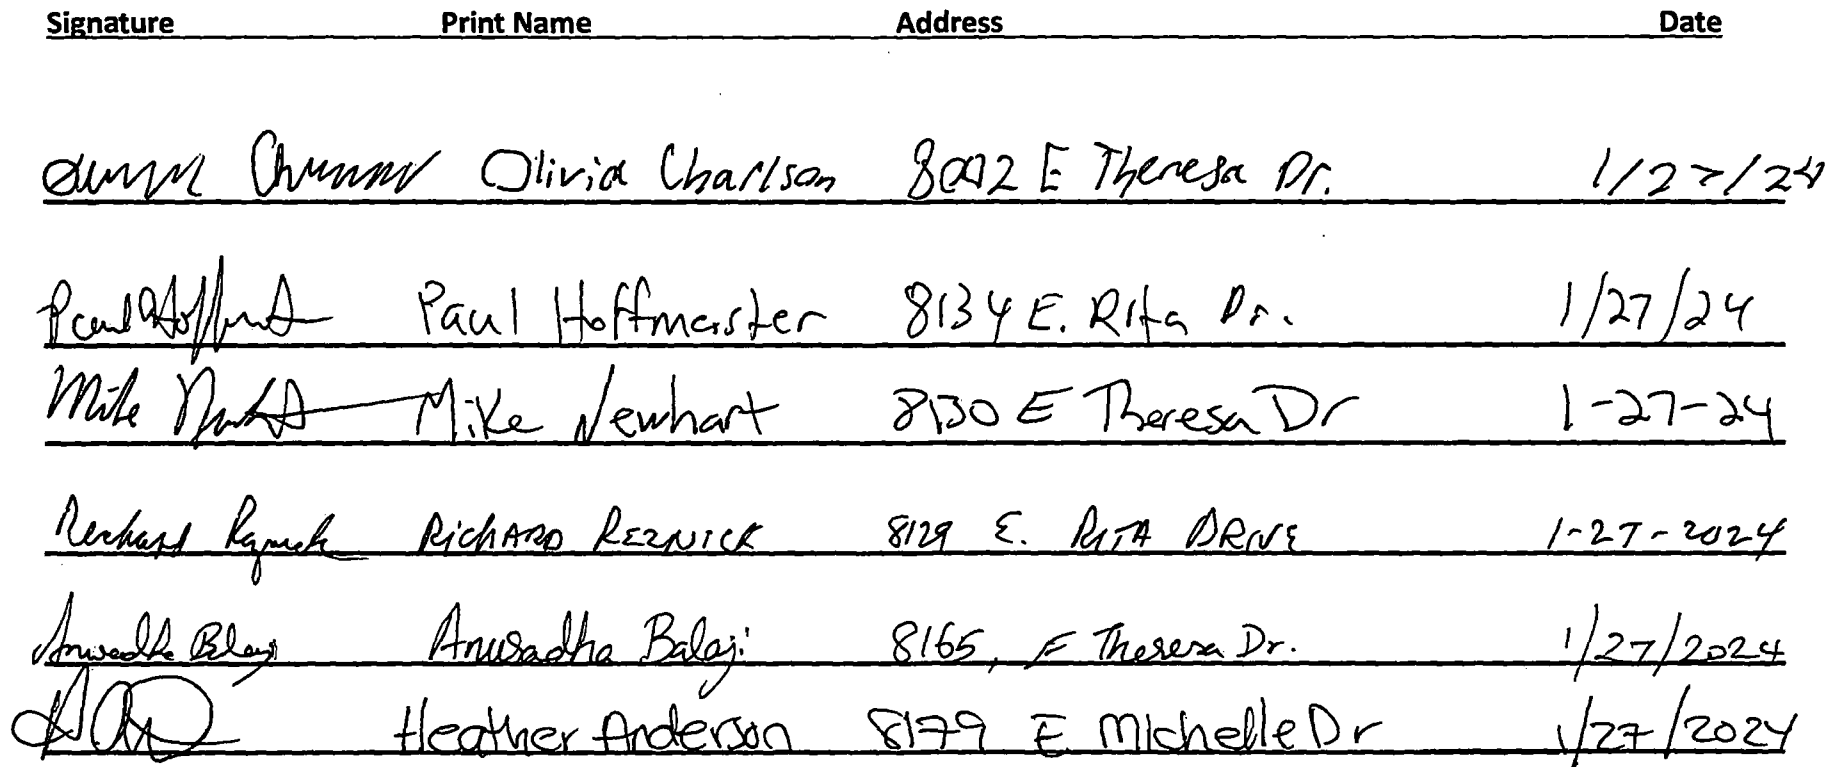 Signature Print Name Address Date
Olivia Charlson 8002 E Theresa Dr. 1/27/24
Paul Hoffmaster 8134 E. Rita Dr. 1/27/24
Mike Mike Newhart 8130 E Theresa Dr 1-27-24
Richard RICHARD REZNICK 8129 E. RITA DRIVE 1-27-2024
Anuradha Balaji Anuradha Balaji 8165, E Theresa Dr. 1/27/2024
Heather Anderson 8179 E Michelle Dr 1/27/2024